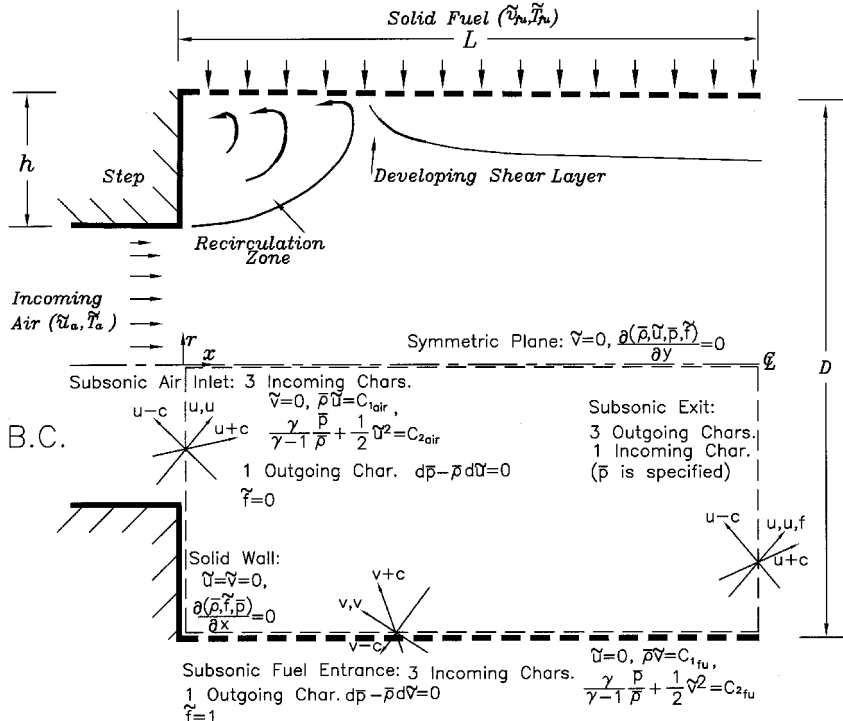 Solid Fuel (ṽfu,T̃fu)
L
h
Step
Developing Shear Layer
Recirculation
Zone
Incoming
Air (ũa,T̃a)
r
x
Symmetric Plane: ṽ=0, ∂(ρ̄,ũ,p̄,f̃)/∂y=0
℄
D
Subsonic Air Inlet: 3 Incoming Chars.
ṽ=0, ρ̄ũ=C1air,
γ/(γ-1) p̄/ρ̄ + 1/2 ũ²=C2air
1 Outgoing Char. dp̄-ρ̄dũ=0
f̃=0
u-c
u,u
u+c
B.C.
Subsonic Exit:
3 Outgoing Chars.
1 Incoming Char.
(p̄ is specified)
u-c
u,u,f
u+c
Solid Wall:
ũ=ṽ=0,
∂(ρ̄,f̃,p̄)/∂x=0
v+c
v,v
v-c
Subsonic Fuel Entrance: 3 Incoming Chars.
1 Outgoing Char. dp̄-ρ̄dṽ=0
f̃=1
ũ=0, ρ̄ṽ=C1fu,
γ/(γ-1) p̄/ρ̄ + 1/2 ṽ²=C2fu